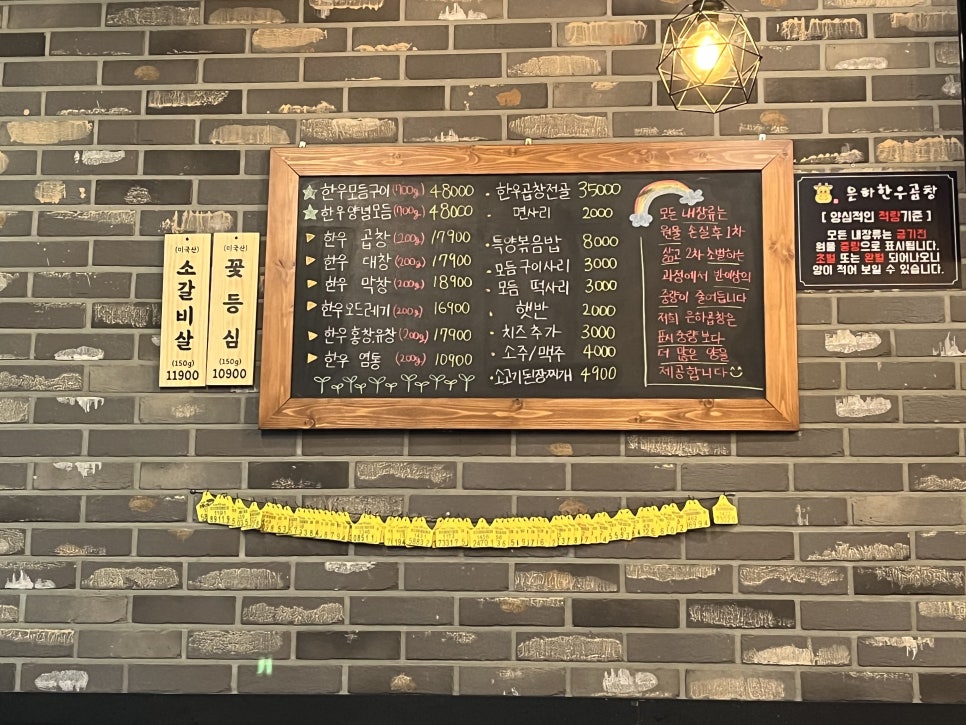 (미국산)
소갈비살
(150g)
11900
(미국산)
꽃등심
(150g)
10900
한우모듬구이 (700g) 48000
한우양념모듬 (700g) 48000
한우 곱창 (200g) 17900
한우 대창 (200g) 17900
한우 막창 (200g) 18900
한우오드레기 (200g) 16900
한우홍창,유창 (200g) 17900
한우 염통 (200g) 10900
· 한우곱창전골 35000
· 면사리 2000
· 특양볶음밥 8000
· 모듬구이사리 3000
· 모듬 떡사리 3000
· 햇반 2000
· 치즈추가 3000
· 소주/맥주 4000
· 소고기된장찌개 4900
모든 내장류는
원물 손실후 1차
삶고 2차 초벌하는
과정에서 반예상의
중량이 줄어듭니다
저희 은하곱창은
표시 중량 보다
더 많은 양을
제공합니다
은하한우곱창
[ 양심적인 적량기준 ]
모든 내장류는 굽기전
원물 중량으로 표시됩니다.
초벌 또는 완벌 되어나오니
양이 적어 보일 수 있습니다.